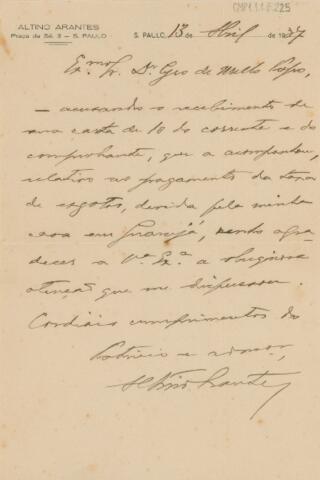 ALTINO ARANTES
Praça da Sé, 3 – S. PAULO
S. PAULO, 13 de Abril de 1937
Exmo. Sr. Dr. Cyro de Mello Pupo,
– accusando o recebimento de
sua carta de 10 do corrente e do
comprobante, que a acompanhou,
relativo ao pagamento da taxa
de esgotos, devida pela minha
casa em Guarujá, venho agra-
decer a V.ª Ex.ª a obsequiosa
attenção que me dispensou.
Cordiais cumprimentos do
Patricio e admor,
Altino Arantes